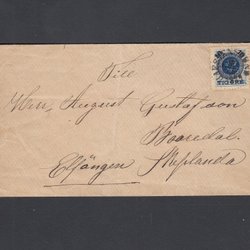 Till
Herr August Gustafson
Boaredal
Elfängen Skeplanda